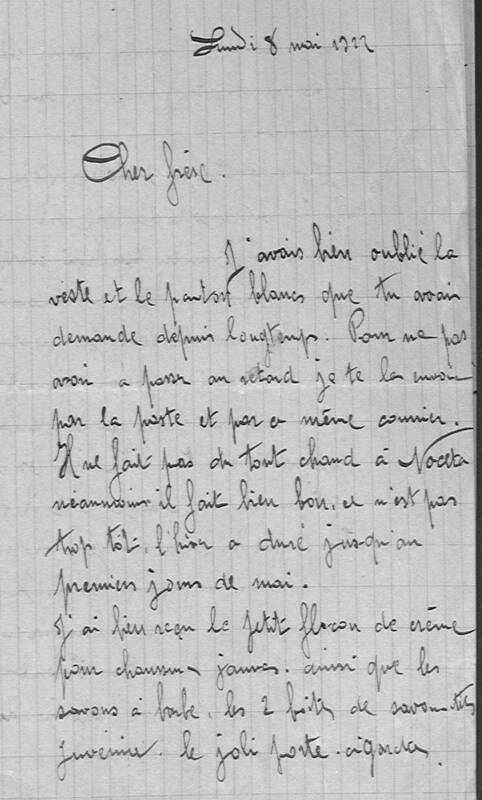 Lundi 8 mai 1922
Cher frère.
J'avais bien oublié la
veste et le pantalon blancs que tu avais
demandé depuis longtemps. Pour ne pas
avoir à passer au retard je te les envoie
par la poste et par ce même courrier.
Il ne fait pas du tout chaud à Noceta
néanmoins il fait bien bon, ce n'est pas
trop tôt, l'hiver a duré jusqu'au
premiers jours de mai.
J'ai bien reçu le petit flacon de crème
pour chaussures jaunes. ainsi que les
savons à barbe, les 2 boîtes de savonnettes
le joli porte-cigarettes